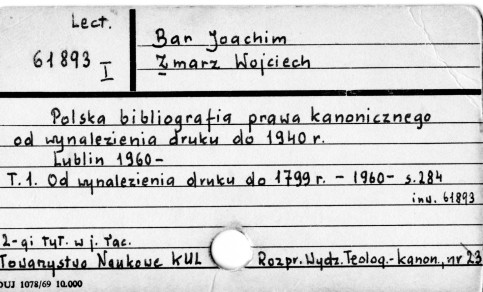 Lect.
61893 I
Bar Joachim
Zmarz Wojciech
Polska bibliografia prawa kanonicznego
od wynalezienia druku do 1940 r.
Lublin 1960-
T. 1. Od wynalezienia druku do 1799 r. - 1960- s. 284
inw. 61893
2-gi tyt. w j. łac.
Towarzystwo Naukowe KUL Rozpr. Wydz. Teolog.-kanon., nr 23
DUJ 1078/69 10.000